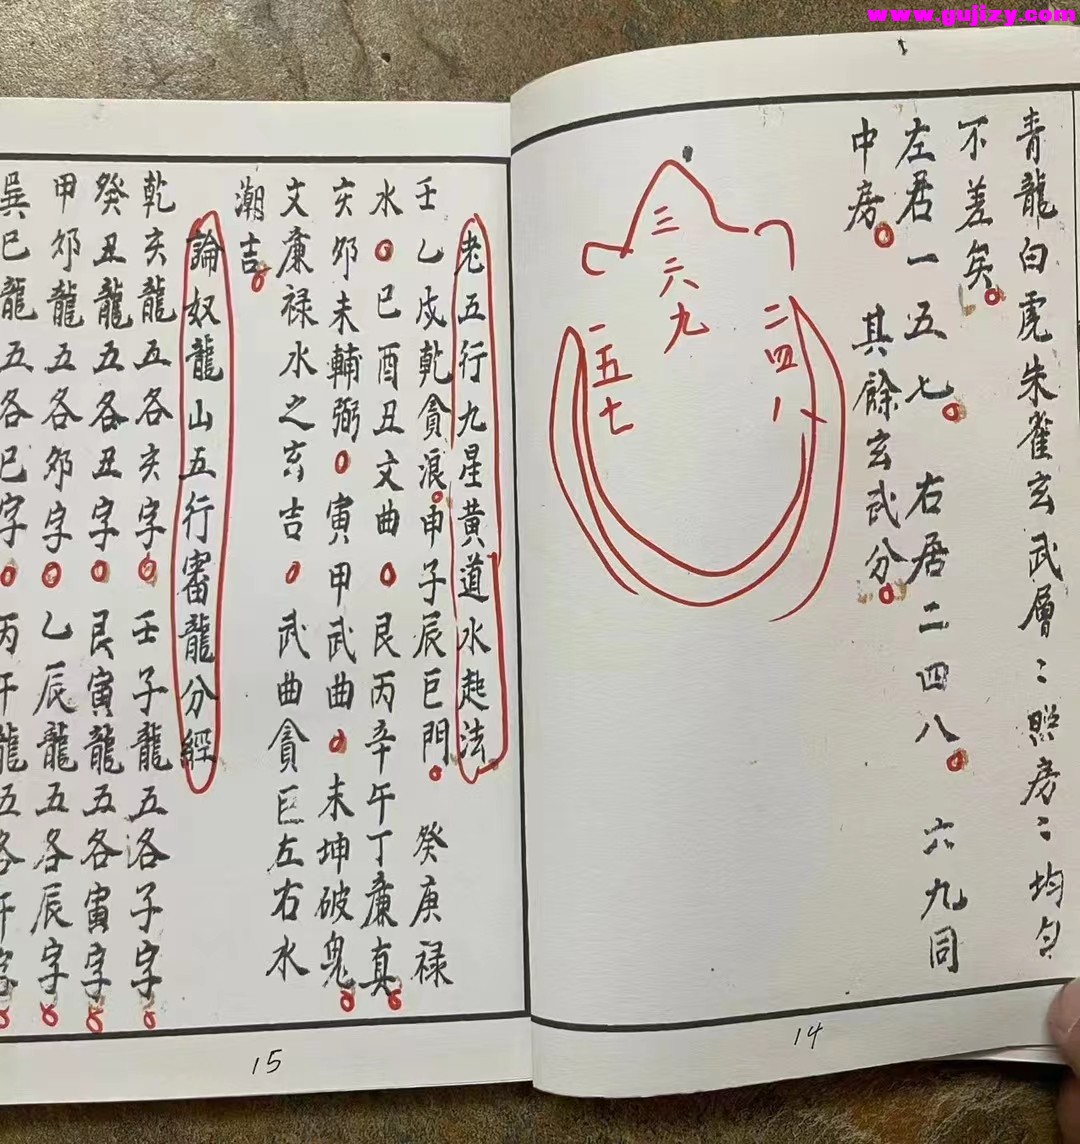 www.gujizy.com
青龍白虎朱雀玄武層：照房：均勻
不差矣
左君一五七 右居二四八 六九同
中房 其餘玄武分
三六九
二四八
一五七
14
老五行九星黄道水起法
壬乙戍乾貪浪 申子辰巨門 癸庚禄
水 巳酉丑文曲 艮丙辛午丁亷真
亥夘未輔弼 寅甲武曲 未坤破鬼
文亷禄水之玄吉 武曲貪巨左右水
潮吉
論奴龍山五行審龍分經
乾亥龍五各亥字 壬子龍五洛子字
癸丑龍五各丑字 艮寅龍五各寅字
甲夘龍五各夘字 乙辰龍五各辰字
巽巳龍五各巳字 丙午龍五各午字
15